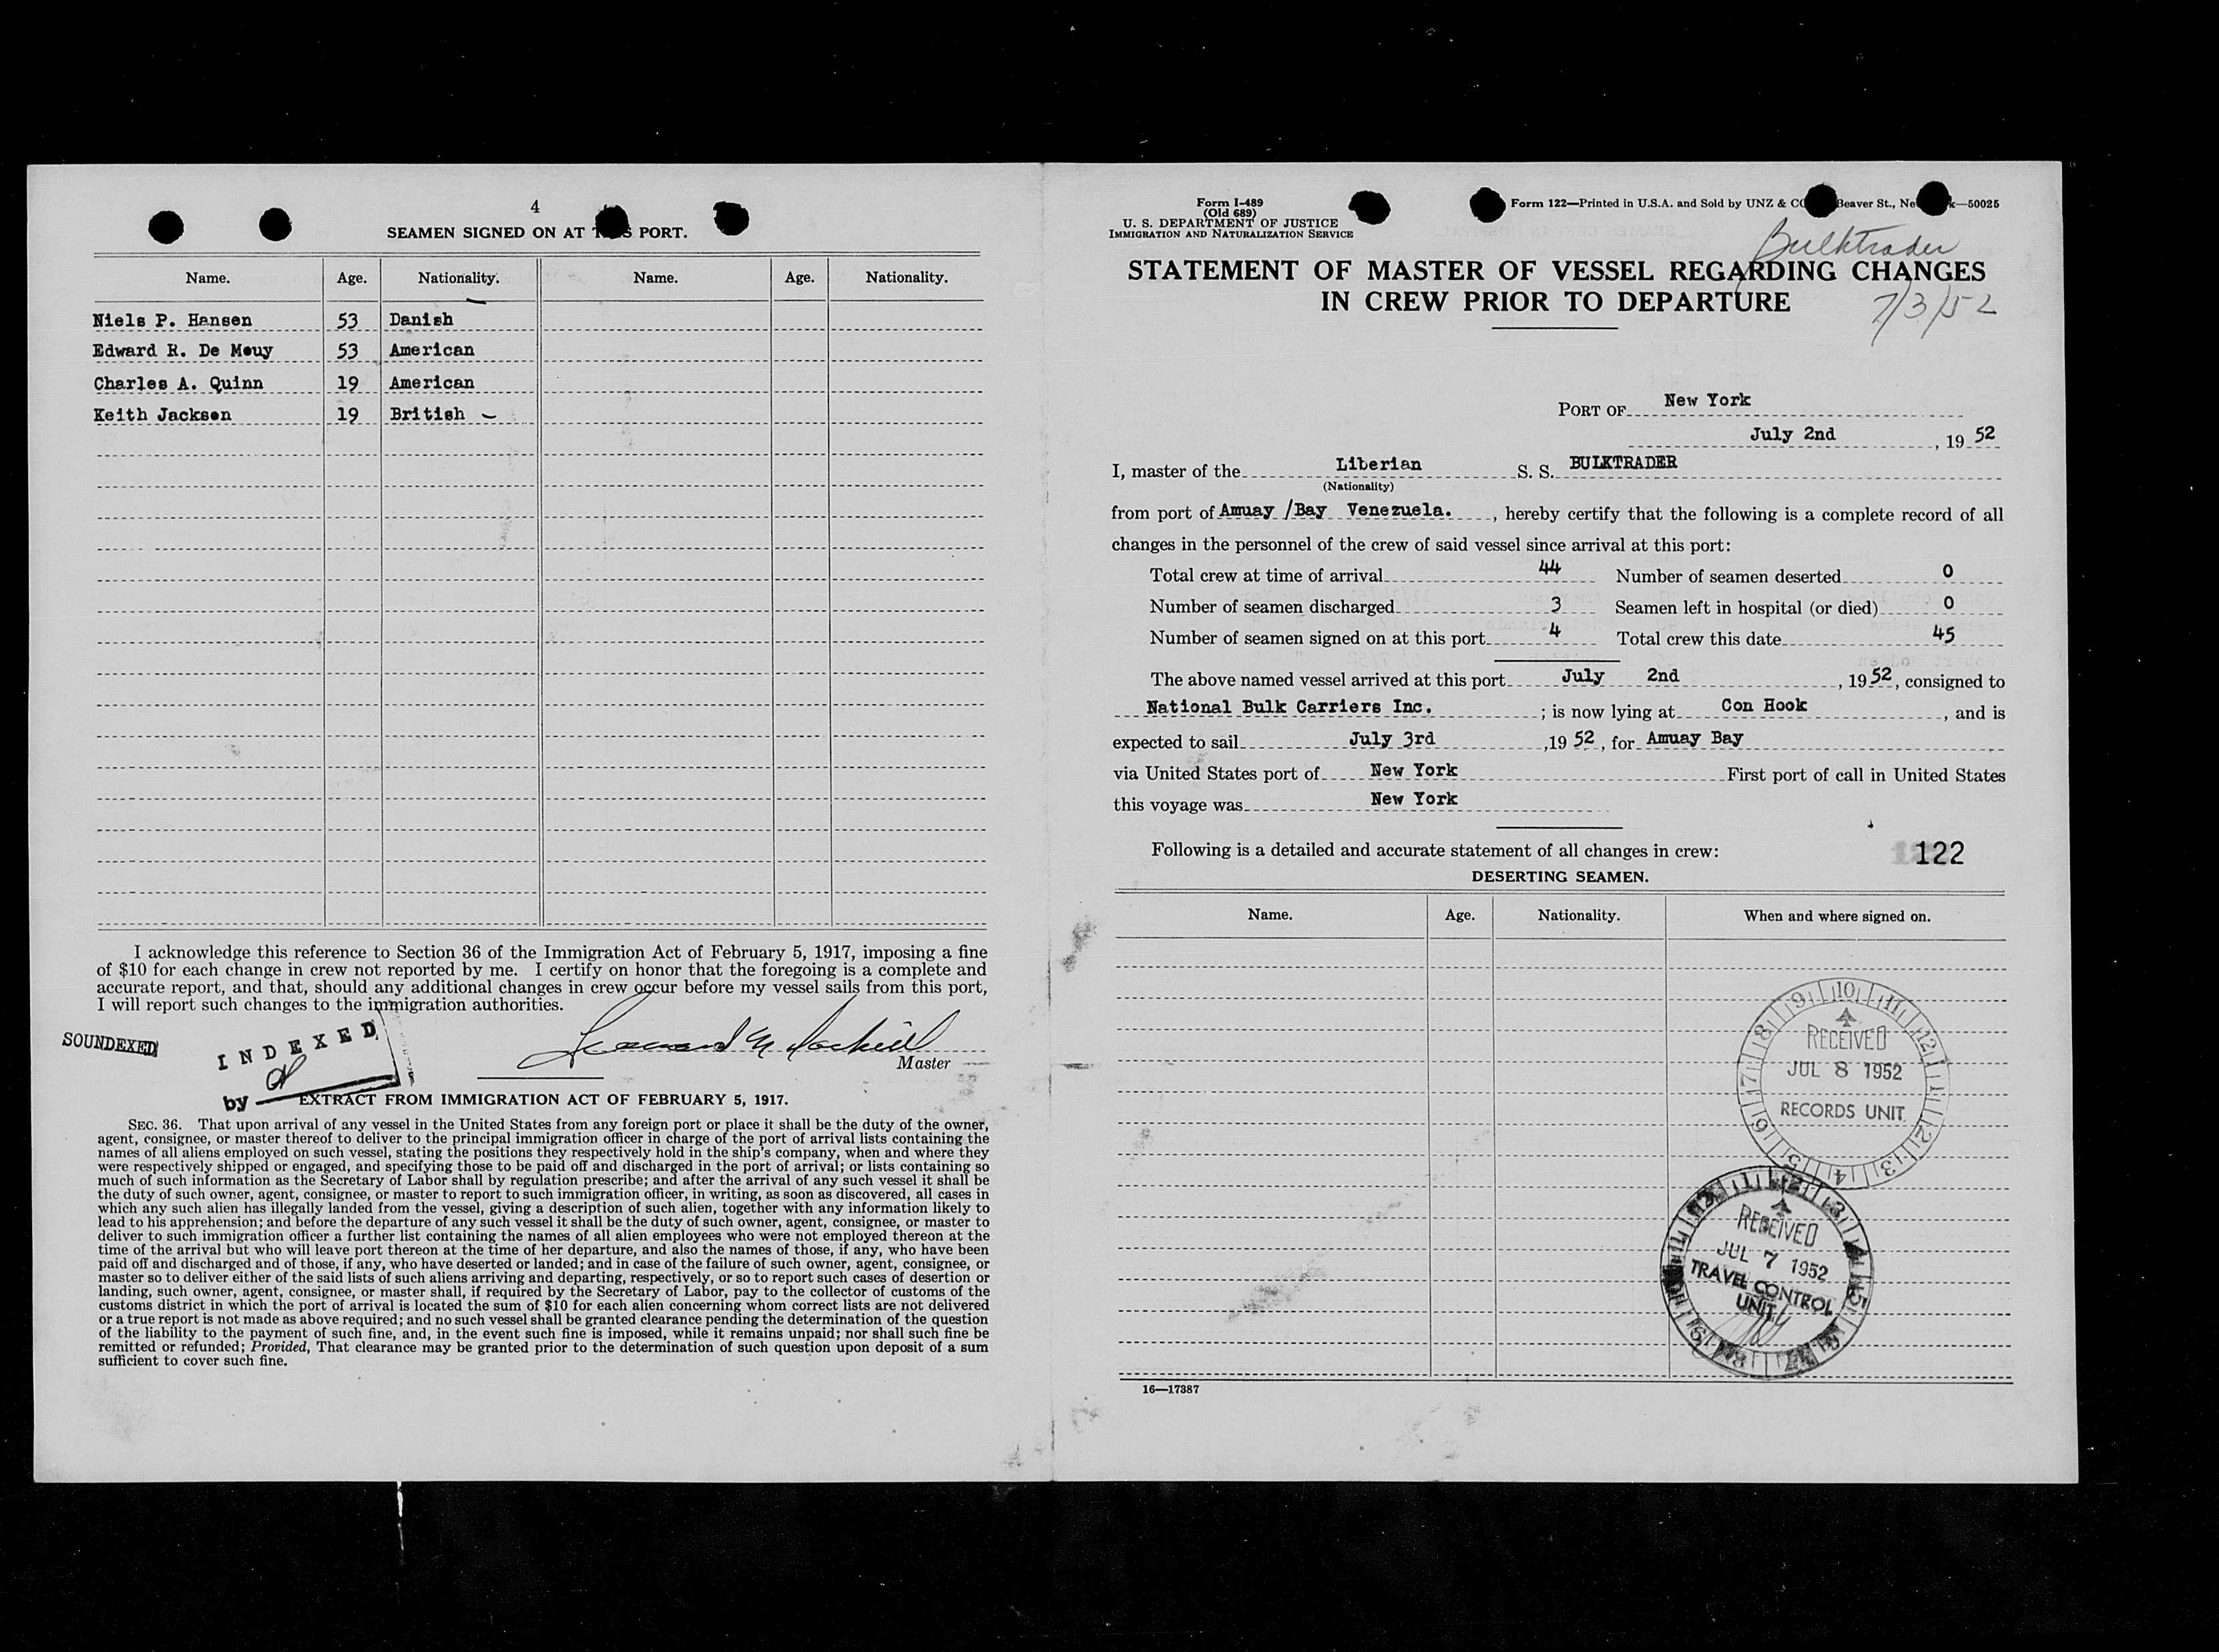 4
SEAMEN SIGNED ON AT THIS PORT.
Name. Age. Nationality. Name. Age. Nationality.
Niels P. Hansen 53 Danish
Edward R. De Mouy 53 American
Charles A. Quinn 19 American
Keith Jackson 19 British
I acknowledge this reference to Section 36 of the Immigration Act of February 5, 1917, imposing a fine
of $10 for each change in crew not reported by me. I certify on honor that the foregoing is a complete and
accurate report, and that, should any additional changes in crew occur before my vessel sails from this port,
I will report such changes to the immigration authorities.
SOUNDEXED
INDEXED
by
Master
EXTRACT FROM IMMIGRATION ACT OF FEBRUARY 5, 1917.
SEC. 36. That upon arrival of any vessel in the United States from any foreign port or place it shall be the duty of the owner,
agent, consignee, or master thereof to deliver to the principal immigration officer in charge of the port of arrival lists containing the
names of all aliens employed on such vessel, stating the positions they respectively hold in the ship's company, when and where they
were respectively shipped or engaged, and specifying those to be paid off and discharged in the port of arrival; or lists containing so
much of such information as the Secretary of Labor shall by regulation prescribe; and after the arrival of any such vessel it shall be
the duty of such owner, agent, consignee, or master to report to such immigration officer, in writing, as soon as discovered, all cases in
which any such alien has illegally landed from the vessel, giving a description of such alien, together with any information likely to
lead to his apprehension; and before the departure of any such vessel it shall be the duty of such owner, agent, consignee, or master to
deliver to such immigration officer a further list containing the names of all alien employees who were not employed thereon at the
time of the arrival but who will leave port thereon at the time of her departure, and also the names of those, if any, who have been
paid off and discharged and of those, if any, who have deserted or landed; and in case of the failure of such owner, agent, consignee, or
master so to deliver either of the said lists of such aliens arriving and departing, respectively, or so to report such cases of desertion or
landing, such owner, agent, consignee, or master shall, if required by the Secretary of Labor, pay to the collector of customs of the
customs district in which the port of arrival is located the sum of $10 for each alien concerning whom correct lists are not delivered
or a true report is not made as above required; and no such vessel shall be granted clearance pending the determination of the question
of the liability to the payment of such fine, and, in the event such fine is imposed, while it remains unpaid; nor shall such fine be
remitted or refunded; Provided, That clearance may be granted prior to the determination of such question upon deposit of a sum
sufficient to cover such fine.
Form I-489
(Old 689)
U. S. DEPARTMENT OF JUSTICE
IMMIGRATION AND NATURALIZATION SERVICE
Form 122—Printed in U.S.A. and Sold by UNZ & CO Beaver St., New York—50025
Bulktrader
STATEMENT OF MASTER OF VESSEL REGARDING CHANGES
IN CREW PRIOR TO DEPARTURE
7/3/52
PORT OF New York
July 2nd, 19 52
I, master of the Liberian S. S. BULKTRADER
(Nationality)
from port of Amuay /Bay Venezuela. , hereby certify that the following is a complete record of all
changes in the personnel of the crew of said vessel since arrival at this port:
Total crew at time of arrival 44 Number of seamen deserted 0
Number of seamen discharged 3 Seamen left in hospital (or died) 0
Number of seamen signed on at this port 4 Total crew this date 45
The above named vessel arrived at this port July 2nd , 19 52, consigned to
National Bulk Carriers Inc. ; is now lying at Con Hook , and is
expected to sail July 3rd ,19 52, for Amuay Bay
via United States port of New York First port of call in United States
this voyage was New York
Following is a detailed and accurate statement of all changes in crew: 122
DESERTING SEAMEN.
Name. Age. Nationality. When and where signed on.
RECEIVED
JUL 8 1952
RECORDS UNIT
RECEIVED
JUL 7 1952
TRAVEL CONTROL
UNIT
16—17387